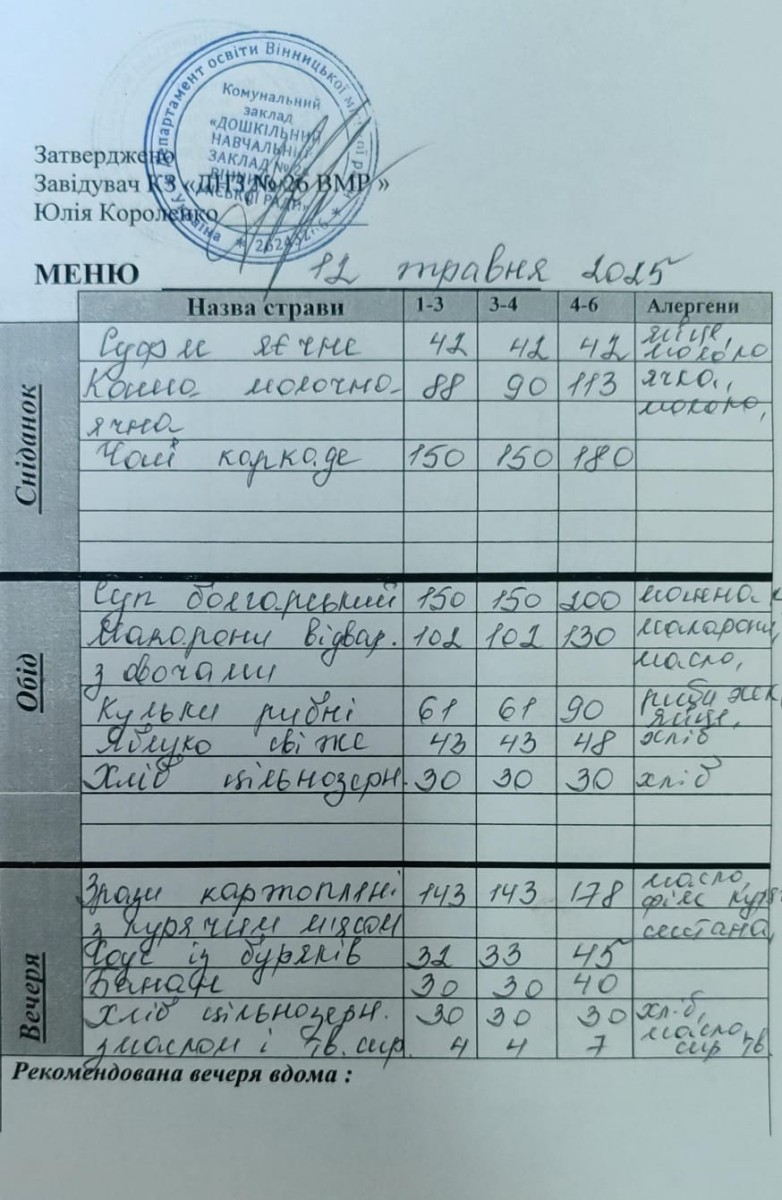 Департамент освіти Вінницької міської ради
Комунальний
заклад
«ДОШКІЛЬНИЙ
НАВЧАЛЬНИЙ
ЗАКЛАД № 26
ВІННИЦЬКОЇ
МІСЬКОЇ РАДИ»
Україна
Затверджено
Завідувач КЗ «ДНЗ № 26 ВМР »
Юлія Короленко
МЕНЮ 12 травня 2025
Назва страви 1-3 3-4 4-6 Алергени
Сніданок
Суфле яєчне 42 42 42 яйце, молоко
Каша молочна 88 90 113 ячка, молоко,
ячна
Чай каркаде 150 150 180
Обід
Суп болгарський 150 150 200
Макарони відвар. 102 102 130 макарони,
з овочами масло,
Кульки рибні 61 61 90 риба хек яйце,
Яблуко свіже 43 43 48 хліб
Хліб цільнозерн. 30 30 30 хліб
Вечеря
Зрази картопляні 143 143 178 масло, філе куряче
з курячим мясом сметана,
Соус із буряків 32 33 45
Банан 30 30 40
Хліб цільнозерн. 30 30 30 хліб,
з маслом і тв. сир. 4 4 7 масло, сир тв
Рекомендована вечеря вдома :